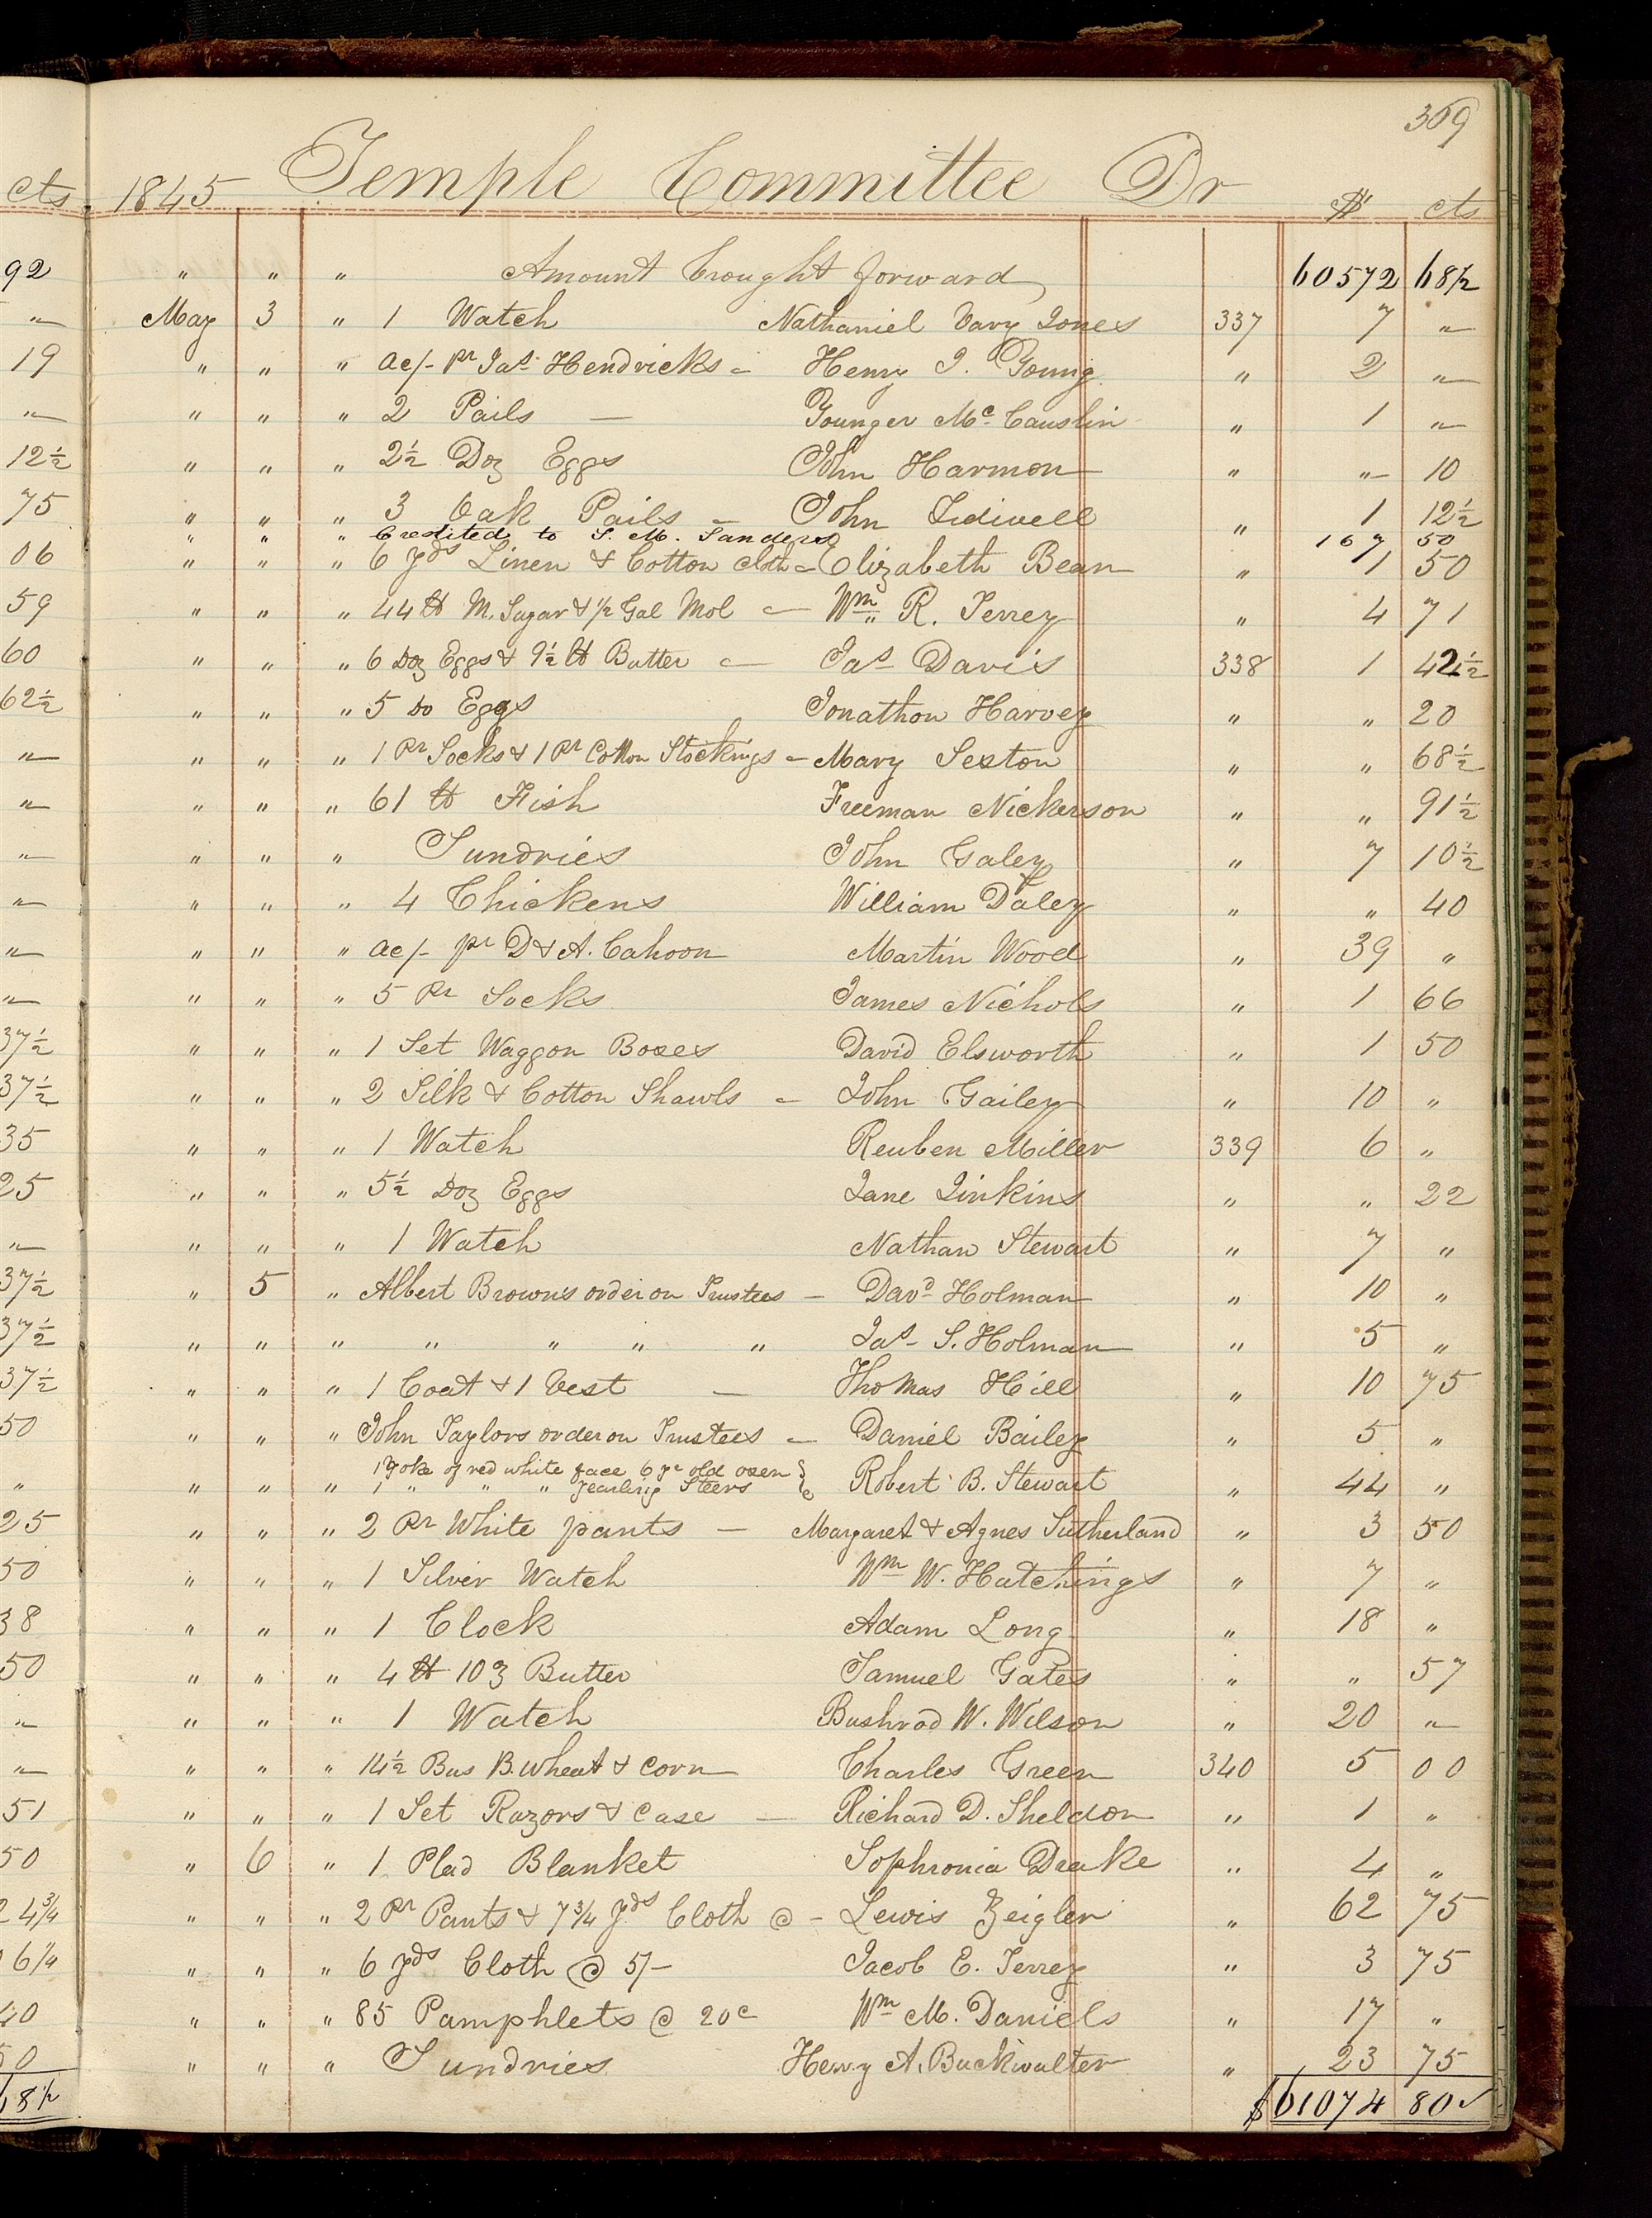 369
cts 1845 Temple Committee Dr $ cts
92 " " " Amount brought forward 60572 68½
" May 3 " 1 Watch Nathaniel Vary Jones 337 7 "
19 " " " ac/- pr Jas Hendricks - Henry I. Young " 2 "
" " " " 2 Pails — Younger Mc Causlin " 1 "
12½ " " " 2½ Doz Eggs John Harmon " " 10
75 " " " 3 Oak Pails - John Tidwell " 1 12½
" " " Credited to S. M. Sanders 167 50
06 " " " 6 yds Linen & Cotton cloth - Elizabeth Bean " 1 50
59 " " " 44 lb M. Sugar & ½ Gal Mol - Wm R. Terrey " 4 71
60 " " " 6 Doz Eggs & 9½ lb Butter - Jas Davis 338 1 42½
62½ " " " 5 Do Eggs Jonathon Harvey " " 20
" " " " 1 Pr Socks & 1 Pr Cotton Stockings - Mary Sexton " " 68½
" " " " 61 lb Fish Freeman Nickerson " " 91½
" " " " Sundries John Galey " 7 10½
" " " " 4 Chickens William Daley " " 40
" " " " ac/- pr D & A. Cahoon Martin Wood " 39 "
" " " " 5 Pr Socks James Nichols " 1 66
37½ " " " 1 Set Waggon Boxes David Elsworth " 1 50
37½ " " " 2 Silk & Cotton Shawls - John Gailey " 10 "
35 " " " 1 Watch Reuben Miller 339 6 "
25 " " " 5½ Doz Eggs Jane Jinkins " " 22
" " " " 1 Watch Nathan Stewart " 7 "
37½ " 5 " Albert Browns order on Trustees - Davd Holman " 10 "
37½ " " " " " " " Jas S. Holman " 5 "
37½ " " " 1 Coat & 1 Vest — Thomas Hill " 10 75
50 " " " John Taylors order on Trustees - Daniel Bailey " 5 "
1 Yoke of red white face 6 yr old oxen }
" " " " 1 " " " yearling Steers } Robert B. Stewart " 44 "
25 " " " 2 Pr White pants — Margaret & Agnes Sutherland " 3 50
50 " " " 1 Silver Watch Wm W. Hutchings " 7 "
38 " " " 1 Clock Adam Long " 18 "
50 " " " 4 lb 10 ʒ Butter Samuel Gates " " 57
" " " " 1 Watch Bushrod W. Wilson " 20 "
" " " " 14½ Bus B. wheat & corn Charles Green 340 5 00
51 " " " 1 Set Razors & case — Richard D. Sheldon " 1 "
50 " 6 " 1 Plad Blanket Sophronia Drake " 4 "
2 4¾ " " " 2 Pr Pants & 7¾ yds Cloth @ - Lewis Zeigler " 62 75
6¼ " " " 6 yds Cloth @ 5/- Jacob E. Terrey " 3 75
40 " " " 85 Pamphlets @ 20c Wm M. Daniels " 17 "
50 " " " Sundries Henry A. Buckwalter " 23 75
68½ $61074 80 ✓